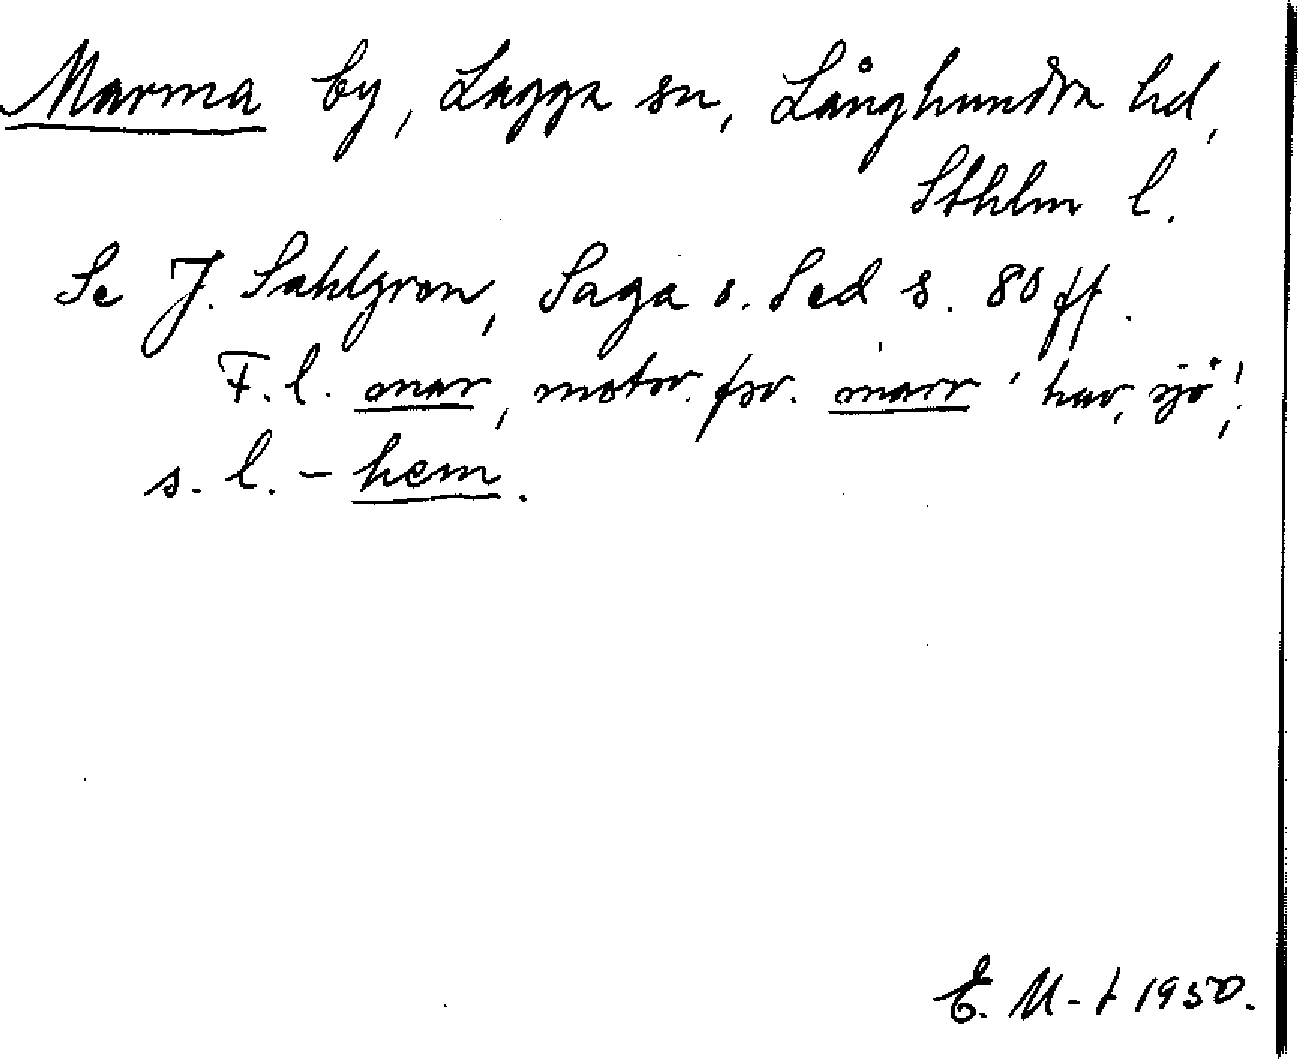 Marma by, Lagga sn, Långhundra hd,
Sthlm l.
Se J. Sahlgren, Saga o. Sed s. 80 ff.
F.l. mar, motsv. fsv. marr 'hav, sjö',
s. l. - hem.
E. M-t 1950.